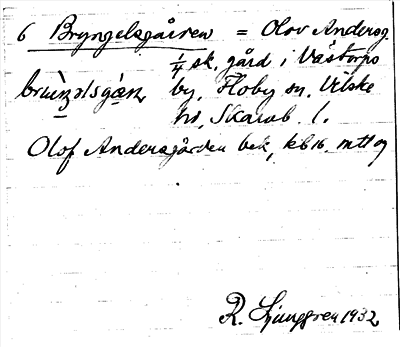 6 Bryngelsgården = Olov Andersg.
1/4 sk. gård i Västorps
by, Floby sn, Vilske
hd, Skarab. l.
Olof Andersgården bek, kb16. mtl og
R. Ljunggren 1932